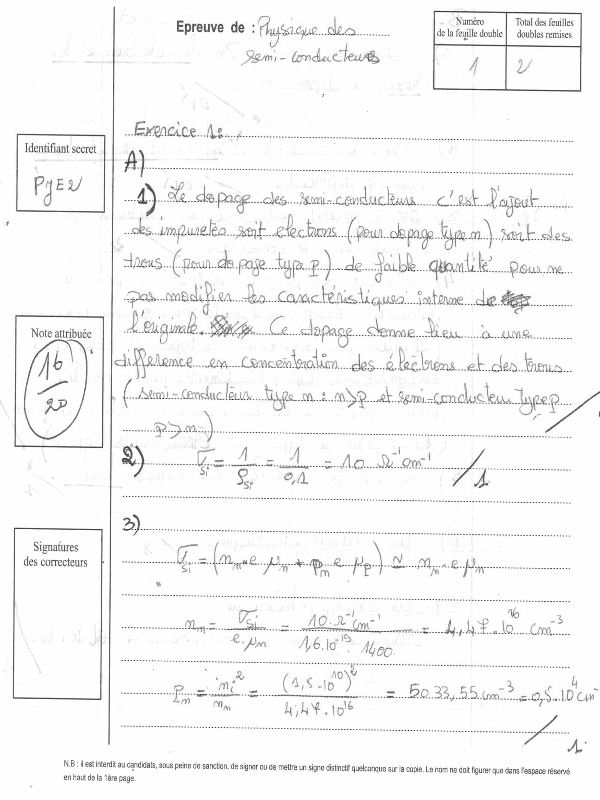 Epreuve de : Physique des
semi-conducteurs
Numéro
de la feuille double
Total des feuilles
doubles remises
1
2
Identifiant secret
PJE2
Note attribuée
16
20
Signatures
des correcteurs
Exercice 1:
A)
1) Le dopage des semi-conducteurs c'est l'ajout
des impuretés soit électrons (pour dopage type n) soit des
trous (pour dopage type p) de faible quantité pour ne
pas modifier les caractéristiques interne de
l'originale. Ce dopage donne lieu à une
difference en concentration des électrons et des trous
(semi-conducteur type n : n>p et semi-conducteur type p
p>n)
2) σSi = 1/ρSi = 1/0,1 = 10 Ω⁻¹cm⁻¹ /1
3)
σSi = (nn·e μn + pn e μp) ≃ nn·e μn
nn = σSi/e·μn = 10·Ω⁻¹cm⁻¹/1,6·10⁻¹⁹·1400 = 4,47·10¹⁶ cm⁻³
Pn = ni²/nn = (1,5·10¹⁰)²/4,47·10¹⁶ = 5033,55 cm⁻³ = 0,5·10⁴ cm⁻³
/1
N.B : il est interdit au candidats, sous peine de sanction, de signer ou de mettre un signe distinctif quelconque sur la copie. Le nom ne doit figurer que dans l'espace réservé
en haut de la 1ère page.